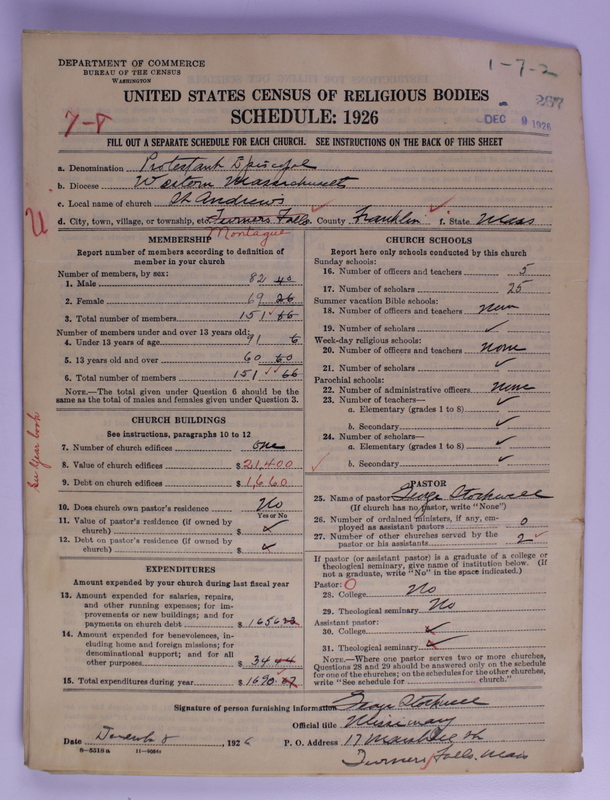 DEPARTMENT OF COMMERCE
BUREAU OF THE CENSUS
WASHINGTON
1-7-2
UNITED STATES CENSUS OF RELIGIOUS BODIES
SCHEDULE: 1926
267
DEC 9 1926
7-8
FILL OUT A SEPARATE SCHEDULE FOR EACH CHURCH. SEE INSTRUCTIONS ON THE BACK OF THIS SHEET
a. Denomination Protestant Episcopal
b. Diocese Western Massachusetts
c. Local name of church St Andrew's
d. City, town, village, or township, etc. Turners Falls e. County Franklin f. State Mass
Montague
MEMBERSHIP
Report number of members according to definition of
member in your church
Number of members, by sex:
1. Male 82 40
2. Female 69 26
3. Total number of members 151 66
Number of members under and over 13 years old:
4. Under 13 years of age 91 6
5. 13 years old and over 60 60
6. Total number of members 151 66
NOTE.—The total given under Question 6 should be the
same as the total of males and females given under Question 3.
See Year book
CHURCH BUILDINGS
See instructions, paragraphs 10 to 12
7. Number of church edifices one
8. Value of church edifices $21,400
9. Debt on church edifices $1,660
10. Does church own pastor's residence? No
Yes or No
11. Value of pastor's residence (if owned by
church) $
12. Debt on pastor's residence (if owned by
church) $
EXPENDITURES
Amount expended by your church during last fiscal year
13. Amount expended for salaries, repairs,
and other running expenses; for im-
provements or new buildings; and for
payments on church debt $1656
14. Amount expended for benevolences, in-
cluding home and foreign missions; for
denominational support; and for all
other purposes $34 44
15. Total expenditures during year $1690
CHURCH SCHOOLS
Report here only schools conducted by this church
Sunday schools:
16. Number of officers and teachers 5
17. Number of scholars 25
Summer vacation Bible schools:
18. Number of officers and teachers none
19. Number of scholars
Week-day religious schools:
20. Number of officers and teachers none
21. Number of scholars
Parochial schools:
22. Number of administrative officers none
23. Number of teachers—
a. Elementary (grades 1 to 8)
b. Secondary
24. Number of scholars—
a. Elementary (grades 1 to 8)
b. Secondary
PASTOR
25. Name of pastor George Stockwell
(If church has no pastor, write "None")
26. Number of ordained ministers, if any, em-
ployed as assistant pastors 0
27. Number of other churches served by the
pastor or his assistants 2
If pastor (or assistant pastor) is a graduate of a college or
theological seminary, give name of institution below. (If
not a graduate, write "No" in the space indicated.)
Pastor: O
28. College No
29. Theological seminary No
Assistant pastor:
30. College
31. Theological seminary
NOTE.—Where one pastor serves two or more churches,
Questions 28 and 29 should be answered only on the schedule
for one of the churches; on the schedules for the other churches,
write "See schedule for church."
Signature of person furnishing information George Stockwell
Official title Missionary
Date December 8, 1926 P. O. Address 17 Marshall St
8-5518 a
Turners Falls, Mass